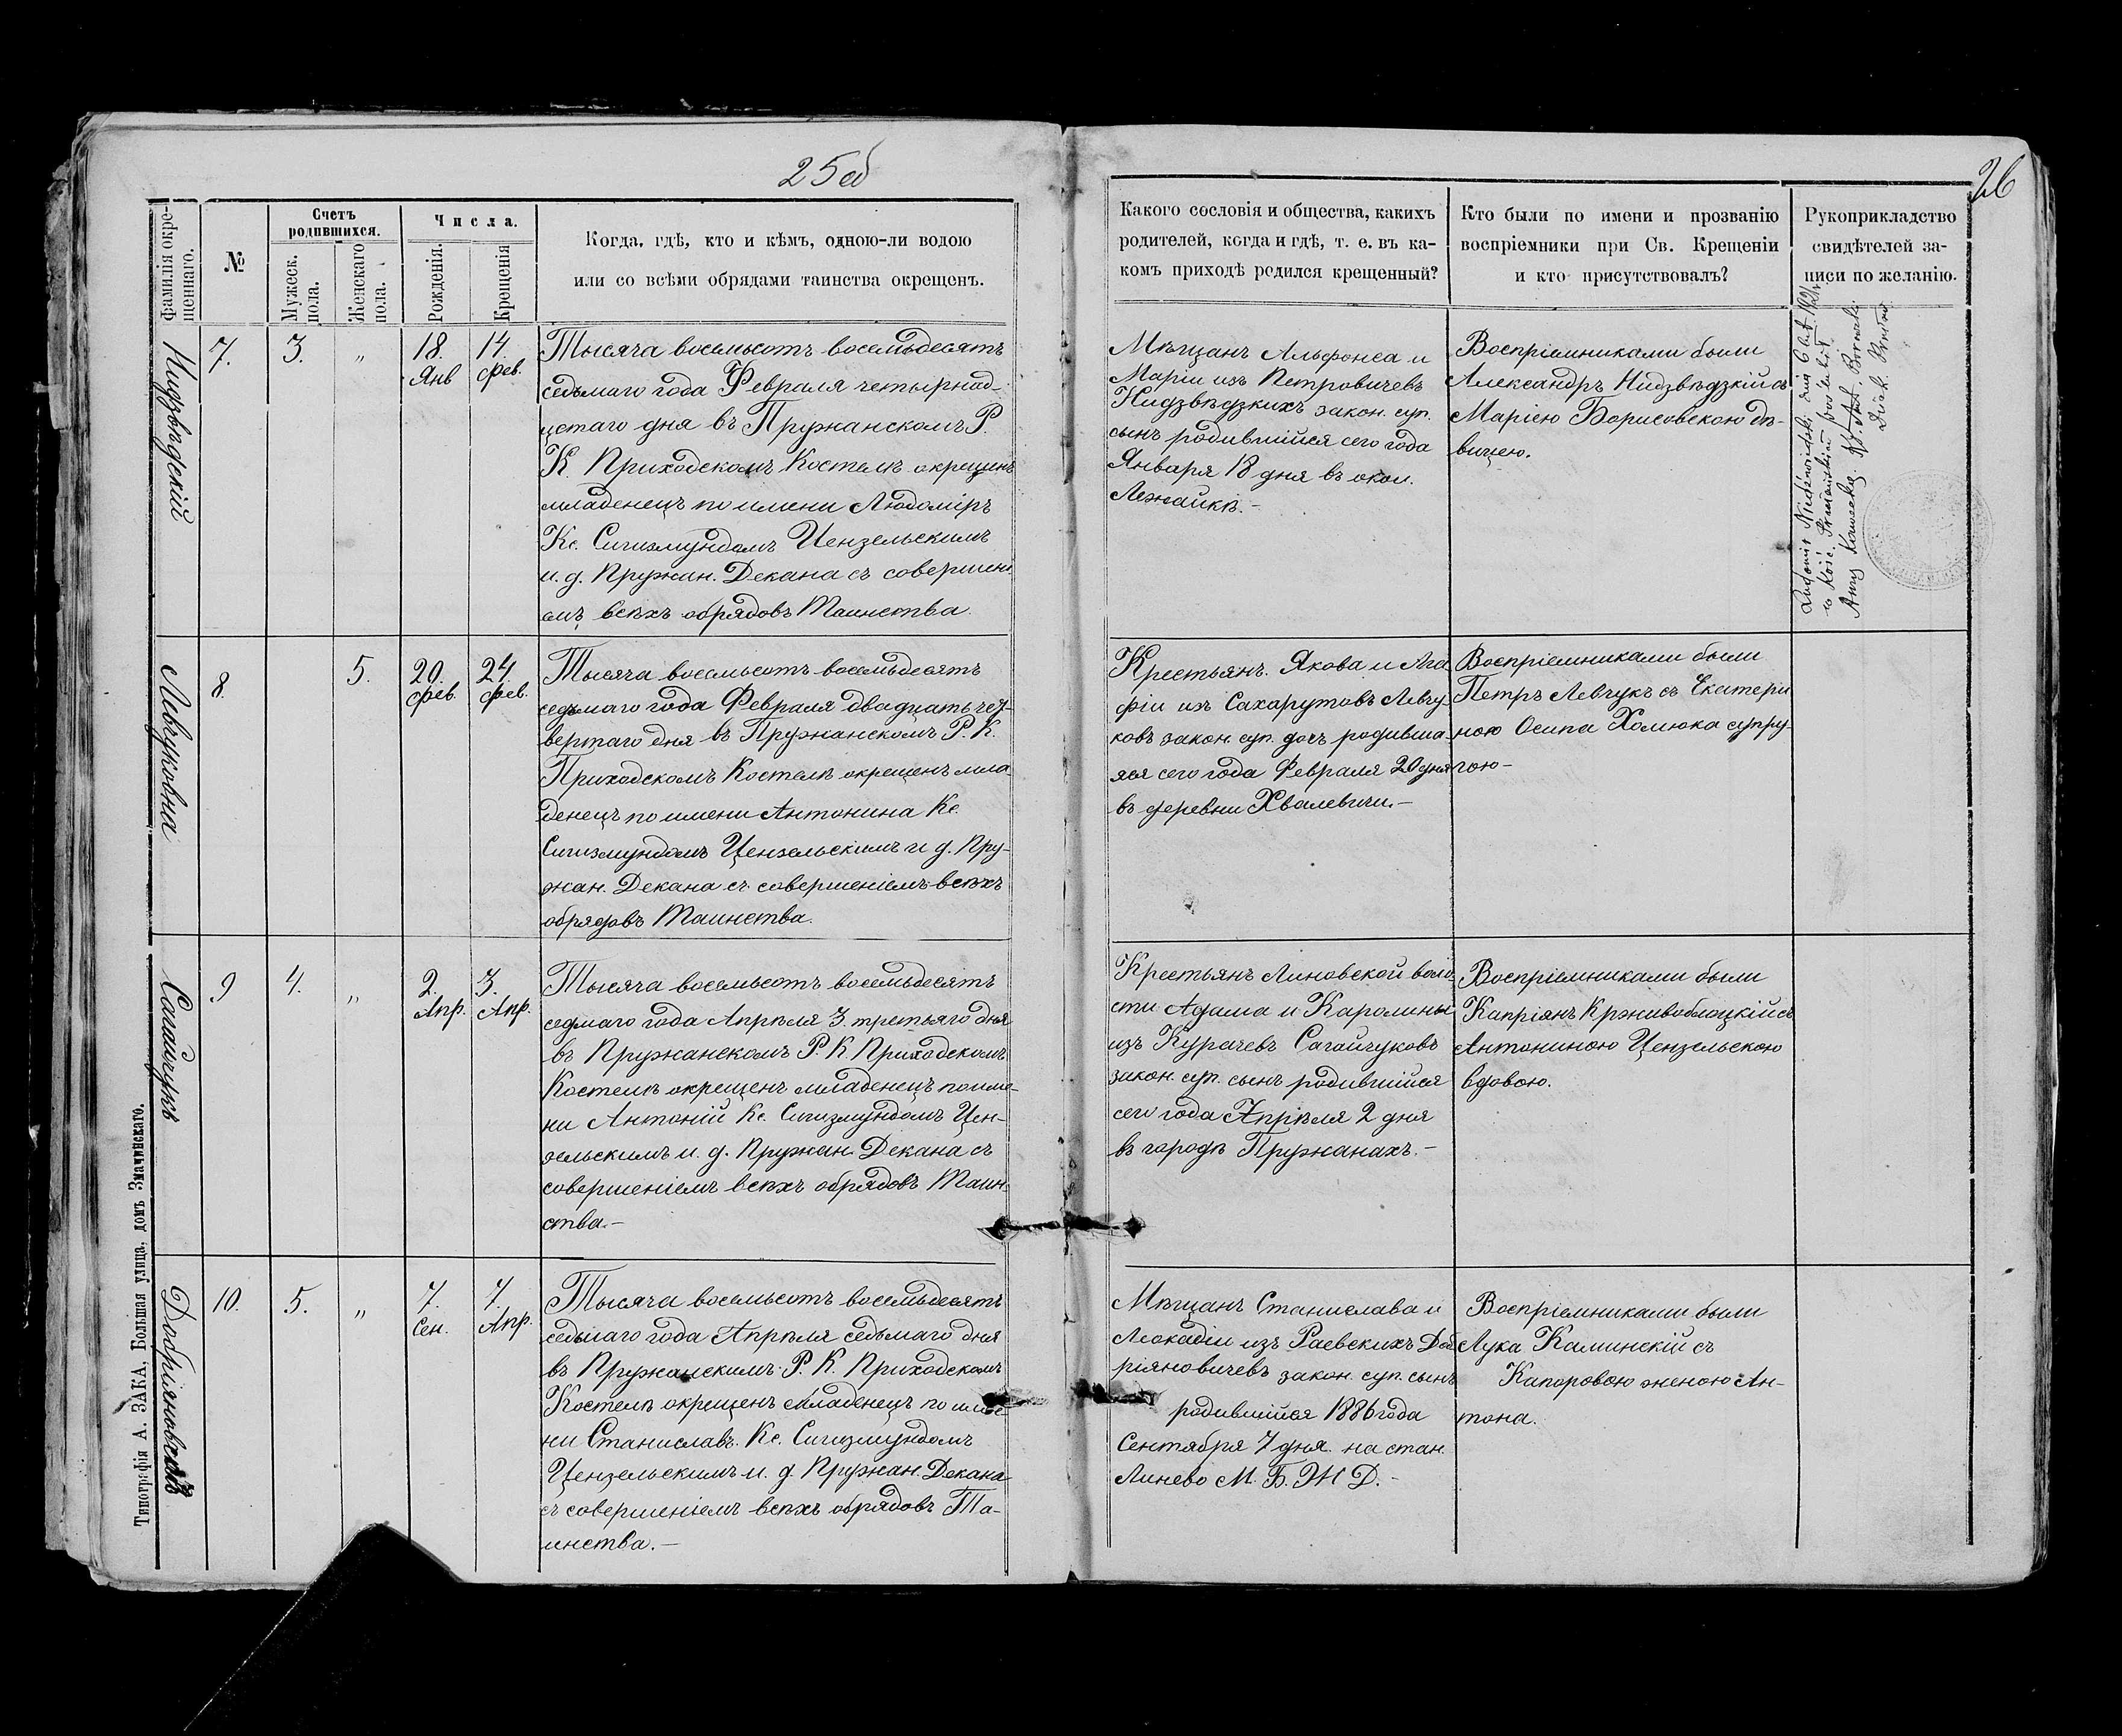 25об
26
Фамилія окре-
щеннаго.
№
Счетъ
родившихся.
Мужеск.
пола.
Женскаго
пола.
Числа.
Рожденія.
Крещенія
Когда, гдѣ, кто и кѣмъ, одною-ли водою
или со всѣми обрядами таинства окрещенъ.
Какого сословія и общества, какихъ
родителей, когда и гдѣ, т. е. въ ка-
комъ приходѣ родился крещенный?
Кто были по имени и прозванію
воспріемники при Св. Крещеніи
и кто присутствовалъ?
Рукоприкладство
свидѣтелей за-
писи по желанію.
Нидзвѣдскій
7.
3.
„
18.
Янв
14.
Фев.
Тысяча восемьсотъ восемьдесятъ
седьмаго года Февраля четырнад-
цетаго дня въ Пружанскомъ Р.
К. Приходскомъ Костелѣ окрещенъ
младенецъ по имени Людоміръ
Кс. Сигизмундомъ Цензельскимъ
и. д. Пружан. Декана съ совершені
емъ всѣхъ обрядовъ Таинства.
Мѣщанъ Альфонса и
Маріи изъ Петровичевъ
Нидзвѣдзкихъ закон. суп.
сынъ родившійся сего года
Января 18 дня въ окол.
Лежайкѣ.-
Воспріемниками были
Александръ Нидзвѣдзкій съ
Маріею Борисовскою дѣ-
вицею.
w Kość.
Anną
Левчуковна
8.
5.
20.
Фев.
24.
Фев.
Тысяча восемьсотъ восемьдесятъ
седьмаго года Февраля двадцать чет-
вертаго дня въ Пружанскомъ Р. К.
Приходскомъ Костелѣ окрещенъ мла-
денецъ по имени Антонина Кс.
Сигизмундомъ Цензельскимъ и д. Пру-
жан. Декана съ совершеніемъ всѣхъ
обрядовъ Таинства.
Крестьянъ. Якова и Ага
фіи изъ Сахарутовъ Левчу-
ковъ закон. суп. дочь родивша-
яся сего года Февраля 20 дня
въ деревни Хвалевичи.-
Воспріемниками были
Петръ Левчукъ съ Екатери
ною Осипа Холюка супру-
гою-
Сагайчукъ
9
4.
„
2.
Апр.
3.
Апр.
Тысяча восемьсотъ восемьдесятъ
седмаго года Апрѣля 3. третьяго дня
въ Пружанскомъ Р. К. Приходскомъ
Костелѣ окрещенъ младенецъ по име-
ни Антоній Кс. Сигизмундомъ Цен-
зельскимъ и. д. Пружан. Декана съ
совершеніемъ всѣхъ обрядовъ Таин-
ства.-
Крестьянъ Линовской воло-
сти Адама и Каролины
изъ Курачевъ Сагайчуковъ
закон. суп. сынъ родившійся
сего года Апрѣля 2 дня
въ городѣ Пружанахъ.-
Воспріемниками были
Капріянъ Крживоблоцкій съ
Антониною Цензельскою
вдовою.
10.
5.
„
7.
Сен.
7.
Апр.
Тысяча восемьсотъ восемьдесятъ
седьмаго года Апрѣля седьмаго дня
въ Пружанскимъ Р. К. Приходскомъ
Костелѣ окрещенъ младенецъ по име-
ни Станиславъ. Кс. Сигизмундомъ
Цензельскимъ и. д. Пружан. Декана
съ совершеніемъ всѣхъ обрядовъ Та-
инства.-
Мѣщанъ Станислава и
Леокадіи изъ Раевскихъ Доб
ріяновичевъ закон. суп. сынъ
родившійся 1886 года
Сентября 7 дня. на стан.
Линево М. Б. Ж Д.-
Воспріемниками были
Лука Каминскій съ
Капоровою женою Ан-
тона.
Типографія А. ЗАКА, Большая улица, домъ Змачинскаго.